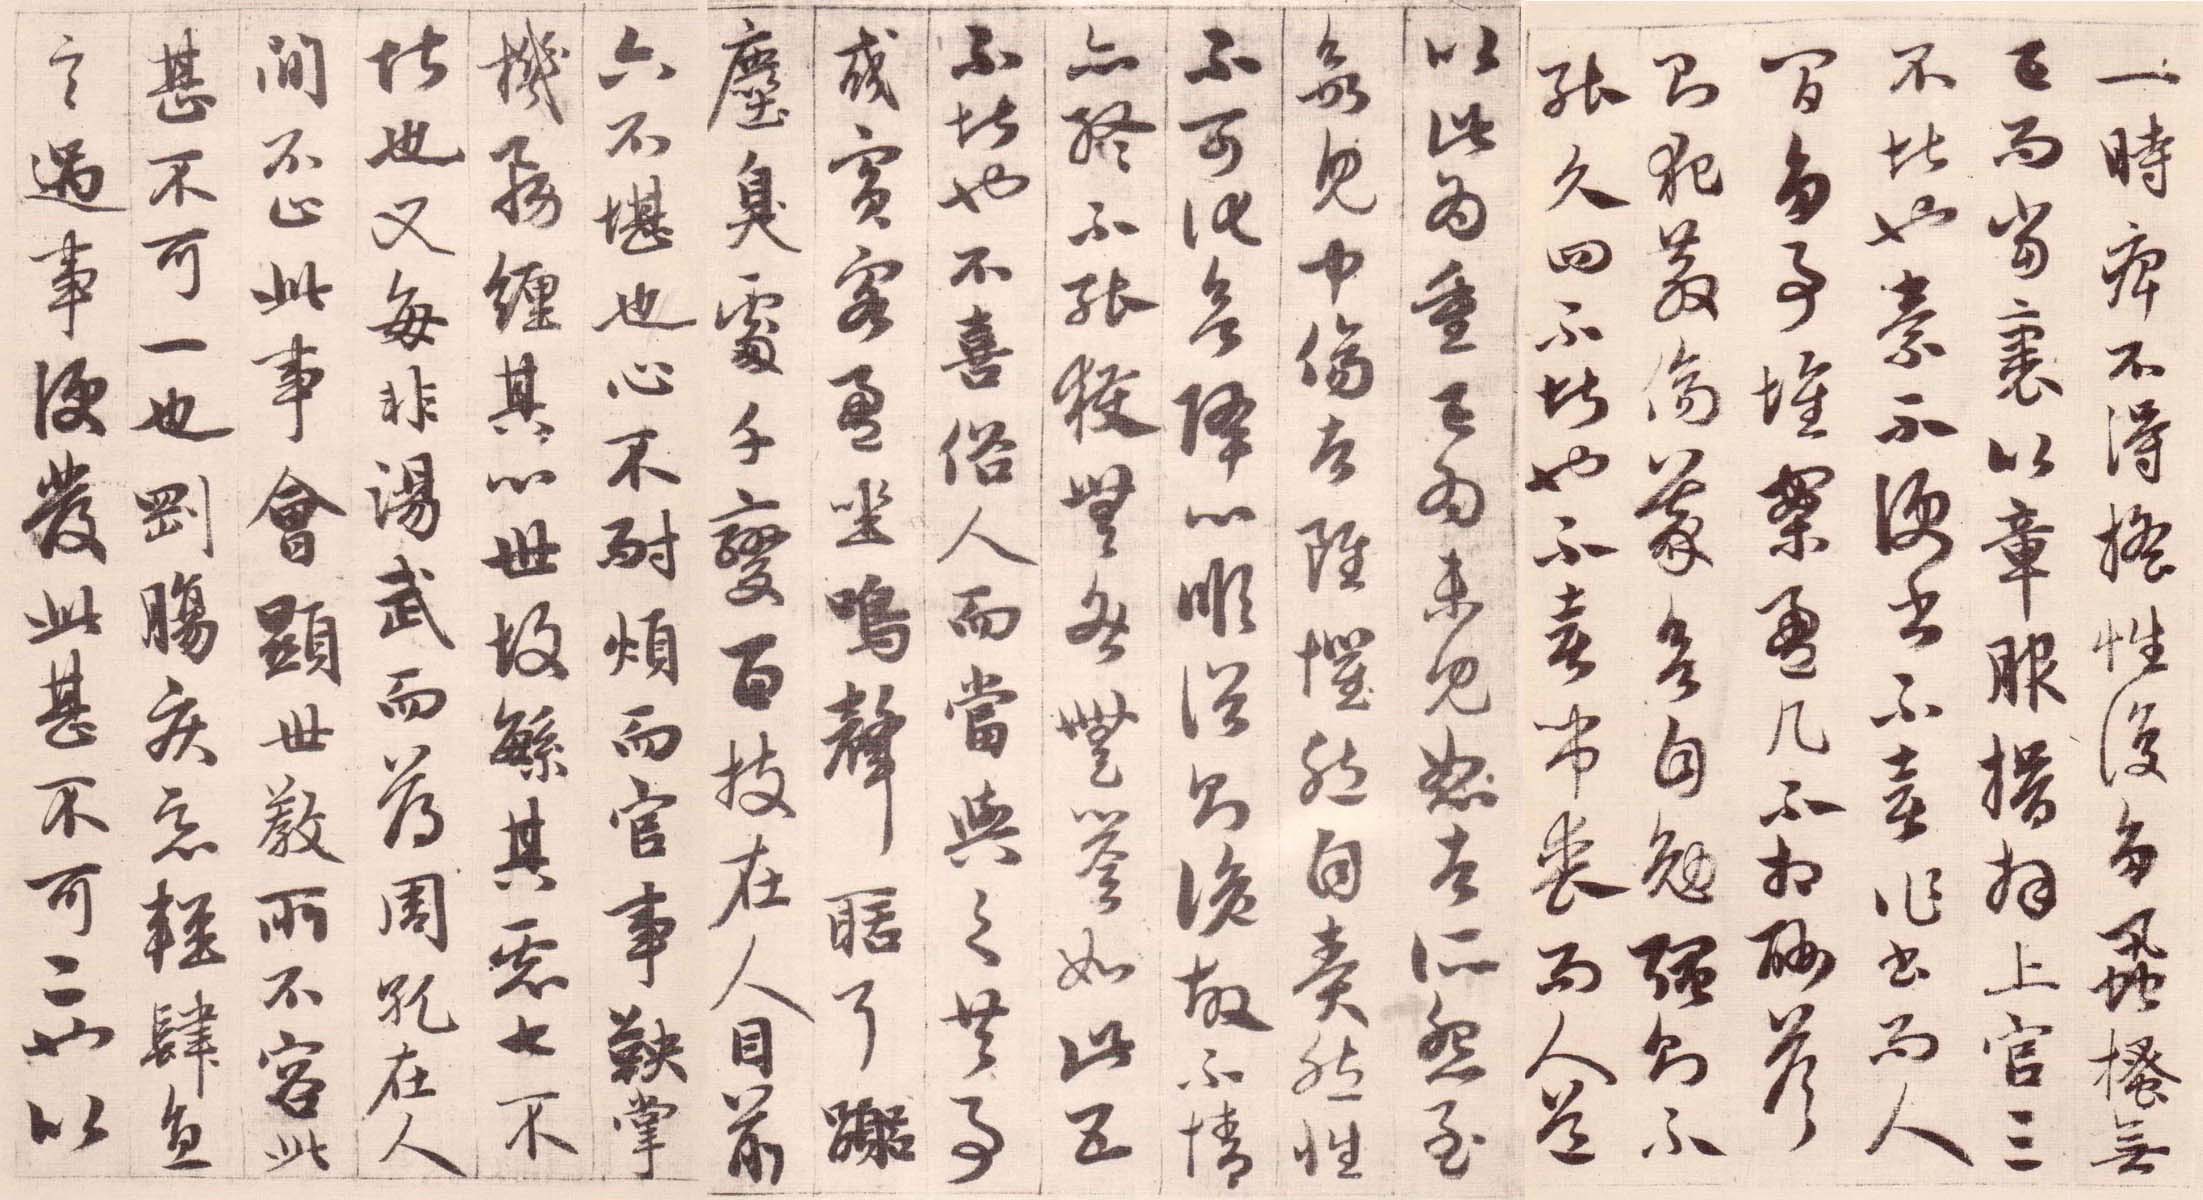 一時痺不得搖性復多蝨搔無
已而當裹以章服揖拜上官三
不堪也素不便書不喜作書而人
間多事堆案盈几不相酬答
則犯教傷義欲自勉強則不
能久四不堪也不喜弔喪而人道
以此為重已為未見恕者所怨至
欲見中傷者雖懼然自責然性
不可化欲降心順俗則詭故不情
亦終不能獲無咎無譽如此五
不堪也不喜俗人而當與之共事
或賓客盈坐鳴聲聒耳囂
塵臭處千變百技在人目前
六不堪也心不耐煩而官事鞅掌
機務纏其心世故繁其慮七不
堪也又每非湯武而薄周孔在人
間不止此事會顯世教所不容此
甚不可一也剛腸疾惡輕肆直
言遇事便發此甚不可二也以